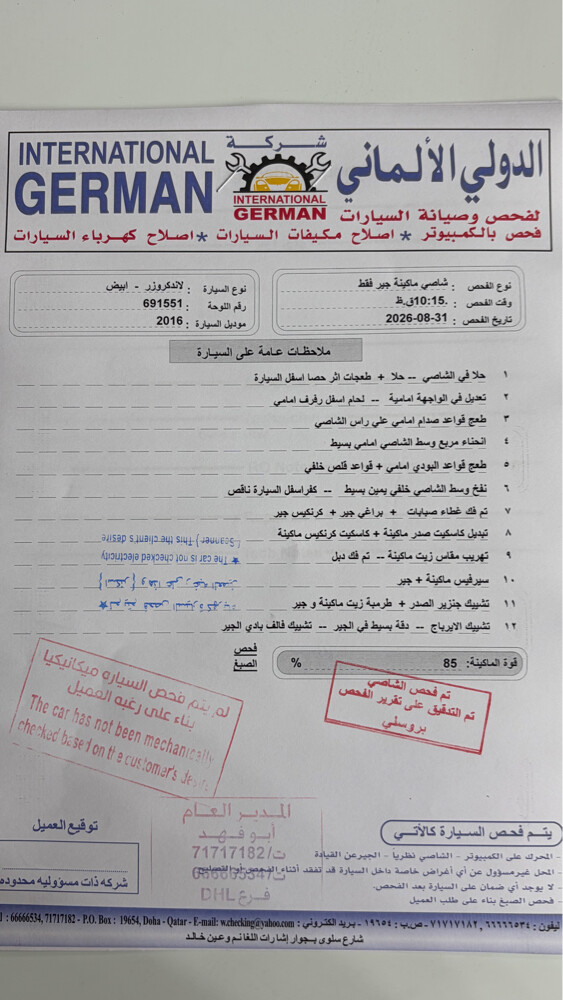 INTERNATIONAL
GERMAN
شركة
INTERNATIONAL
GERMAN
الدولي الألماني
لفحص وصيانة السيارات
فحص بالكمبيوتر * اصلاح مكيفات السيارات * اصلاح كهرباء السيارات
نوع الفحص : شاصي ماكينة جير فقط
وقت الفحص : 10:15.ق.ظ
تاريخ الفحص : 2026-08-31
نوع السيارة : لاندكروزر - ابيض
رقم اللوحة : 691551
موديل السيارة : 2016
ملاحظات عامة على السيارة
١ حلا في الشاصي -- حلا + طعجات اثر حصا اسفل السيارة
٢ تعديل في الواجهة امامية -- لحام اسفل رفرف امامي
٣ طعج قواعد صدام امامي علي راس الشاصي
٤ انحناء مربع وسط الشاصي امامي بسيط
٥ طعج قواعد البودي امامي + قواعد قلص خلفي
٦ نفخ وسط الشاصي خلفي يمين بسيط -- كفراسفل السيارة ناقص
٧ تم فك غطاء صبابات + براغي جير + كرنكيس جير
٨ تبديل كاسكيت صدر ماكينة + كاسكيت كرنكيس ماكينة
٩ تهريب مقاس زيت ماكينة -- تم فك دبل
١٠ سيرفيس ماكينة + جير
١١ تشييك جنزير الصدر + طرمبة زيت ماكينة و جير
١٢ تشييك الايرباج -- دقة بسيط في الجير -- تشييك فالف بادي الجير
★ The car is not checked electricity
(Scanner) This the client's desire
قوة الماكينة: 85 %
فحص الصبغ
تم فحص الشاصي
تم التدقيق على تقرير الفحص
بروسلي
لم يتم فحص السياره ميكانيكيا
بناء على رغبه العميل
The car has not been mechanically
checked based on the customer's desire
المدير العام
أبو فهد
ت/71717182
ت/66666534
فرع DHL
توقيع العميل
شركة ذات مسؤوليه محدوده
يتم فحص السيارة كالآتي
- المحرك على الكمبيوتر - الشاصي نظرياً - الجيرعن القيادة
- المحل غيرمسؤول عن أي أغراض خاصة داخل السيارة قد تفقد أثناء الفحص أو التصليح
- لا يوجد أي ضمان على السيارة بعد الفحص.
- فحص الصبغ بناء على طلب العميل
ليفون : ٦٦٦٦٦٥٣٤, ٧١٧١٧١٨٢ - ص.ب : ١٩٦٥٤ - بريد الكتروني : l : 66666534, 71717182 - P.O. Box : 19654, Doha - Qatar - E-mail: w.checking@yahoo.com
شارع سلوى بجوار إشارات اللقانم وعين خالد